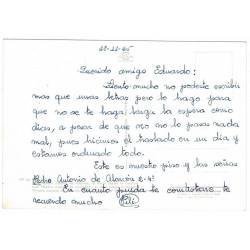 Querido amigo Eduardo:
Siento mucho no poderte escribir
mas que unas letras pero lo hago para
que no se te haga larga la espera como
dices, a pesar de que no me lo pases nada
mal, pues hicimos el traslado en un dia y
estamos ordenado todo.
Este es nuestro piso y las señas
Pedro Antonio de Alarcón 2-4º
En cuanto pueda te contestare te
recuerdo mucho Pili